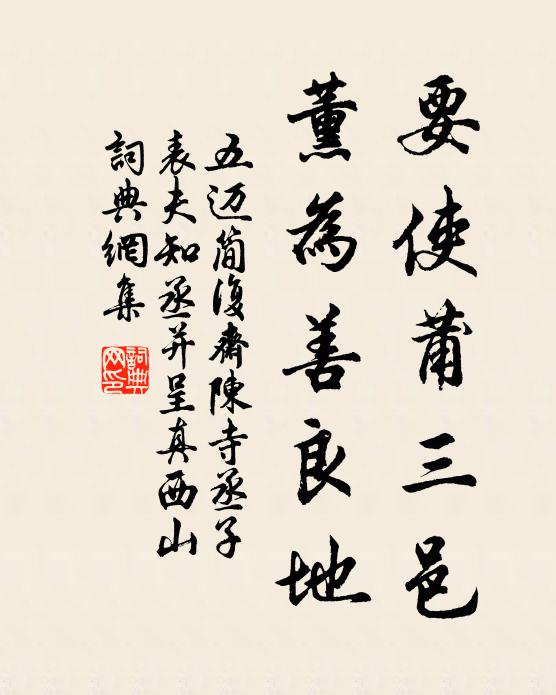 要使莆三邑
薰為善良地
五迈简復齋陳寺丞子
表夫知丞并呈真西山
詞典網集
詞典
网印